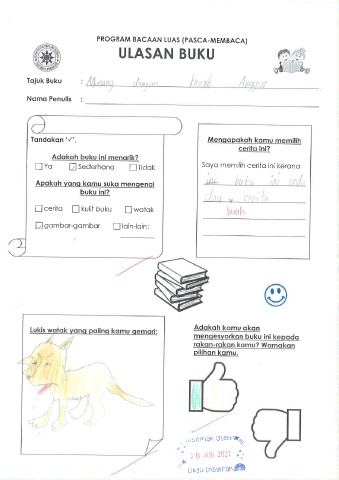 PROGRAM BACAAN LUAS (PASCA-MEMBACA)
ULASAN BUKU
Tajuk Buku : Musang dengan buah Anggur
Nama Penulis :
Tandakan "✓".
Adakah buku ini menarik?
Ya Sederhana Tidak
Apakah yang kamu suka mengenai
buku ini?
cerita kulit buku watak
gambar-gambar lain-lain:
Mengapakah kamu memilih
cerita ini?
Saya memilih cerita ini kerana
ini buku ini ada
dua cerita
buah
Lukis watak yang paling kamu gemari:
Adakah kamu akan
mengesyorkan buku ini kepada
rakan-rakan kamu? Warnakan
pilihan kamu.
Disemak Oleh
20 AUG 2021